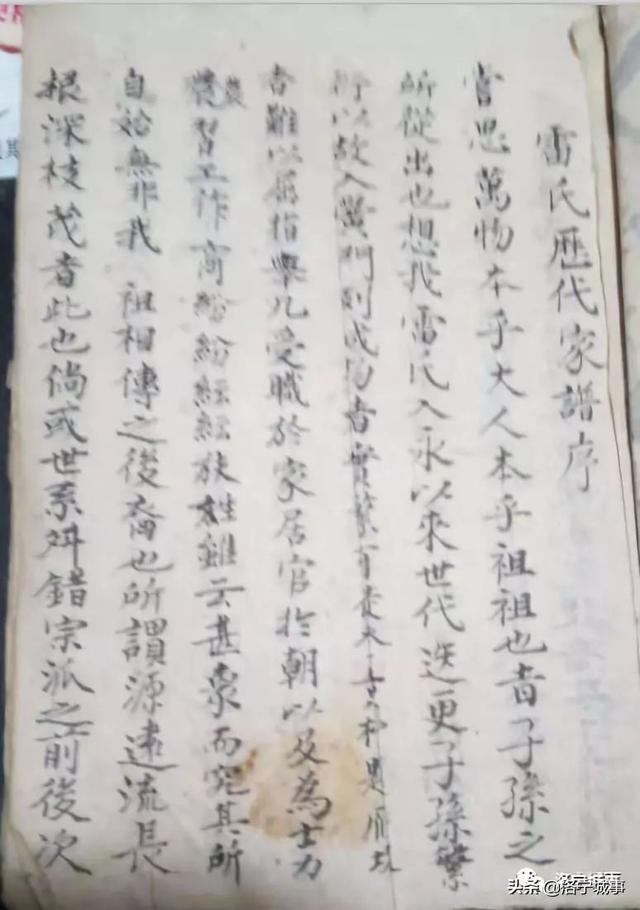 雷氏歷代家譜序
嘗思萬物本乎大人本乎祖祖也者子孫之
所從出也想我雷氏入永以來世代迭更子孫繁
衍以故入黌門列成均者實繁有
者難以屈指舉凡受職於家居官於朝以及為士力
農習工作商紛紛紜紜族姓雖云甚衆而究其所
農
自始無非我 祖相傳之後裔也所謂源遠流長
根深枝茂者此也倘或世系舛錯宗派之前後次
洛宁城事
头条@洛宁城事